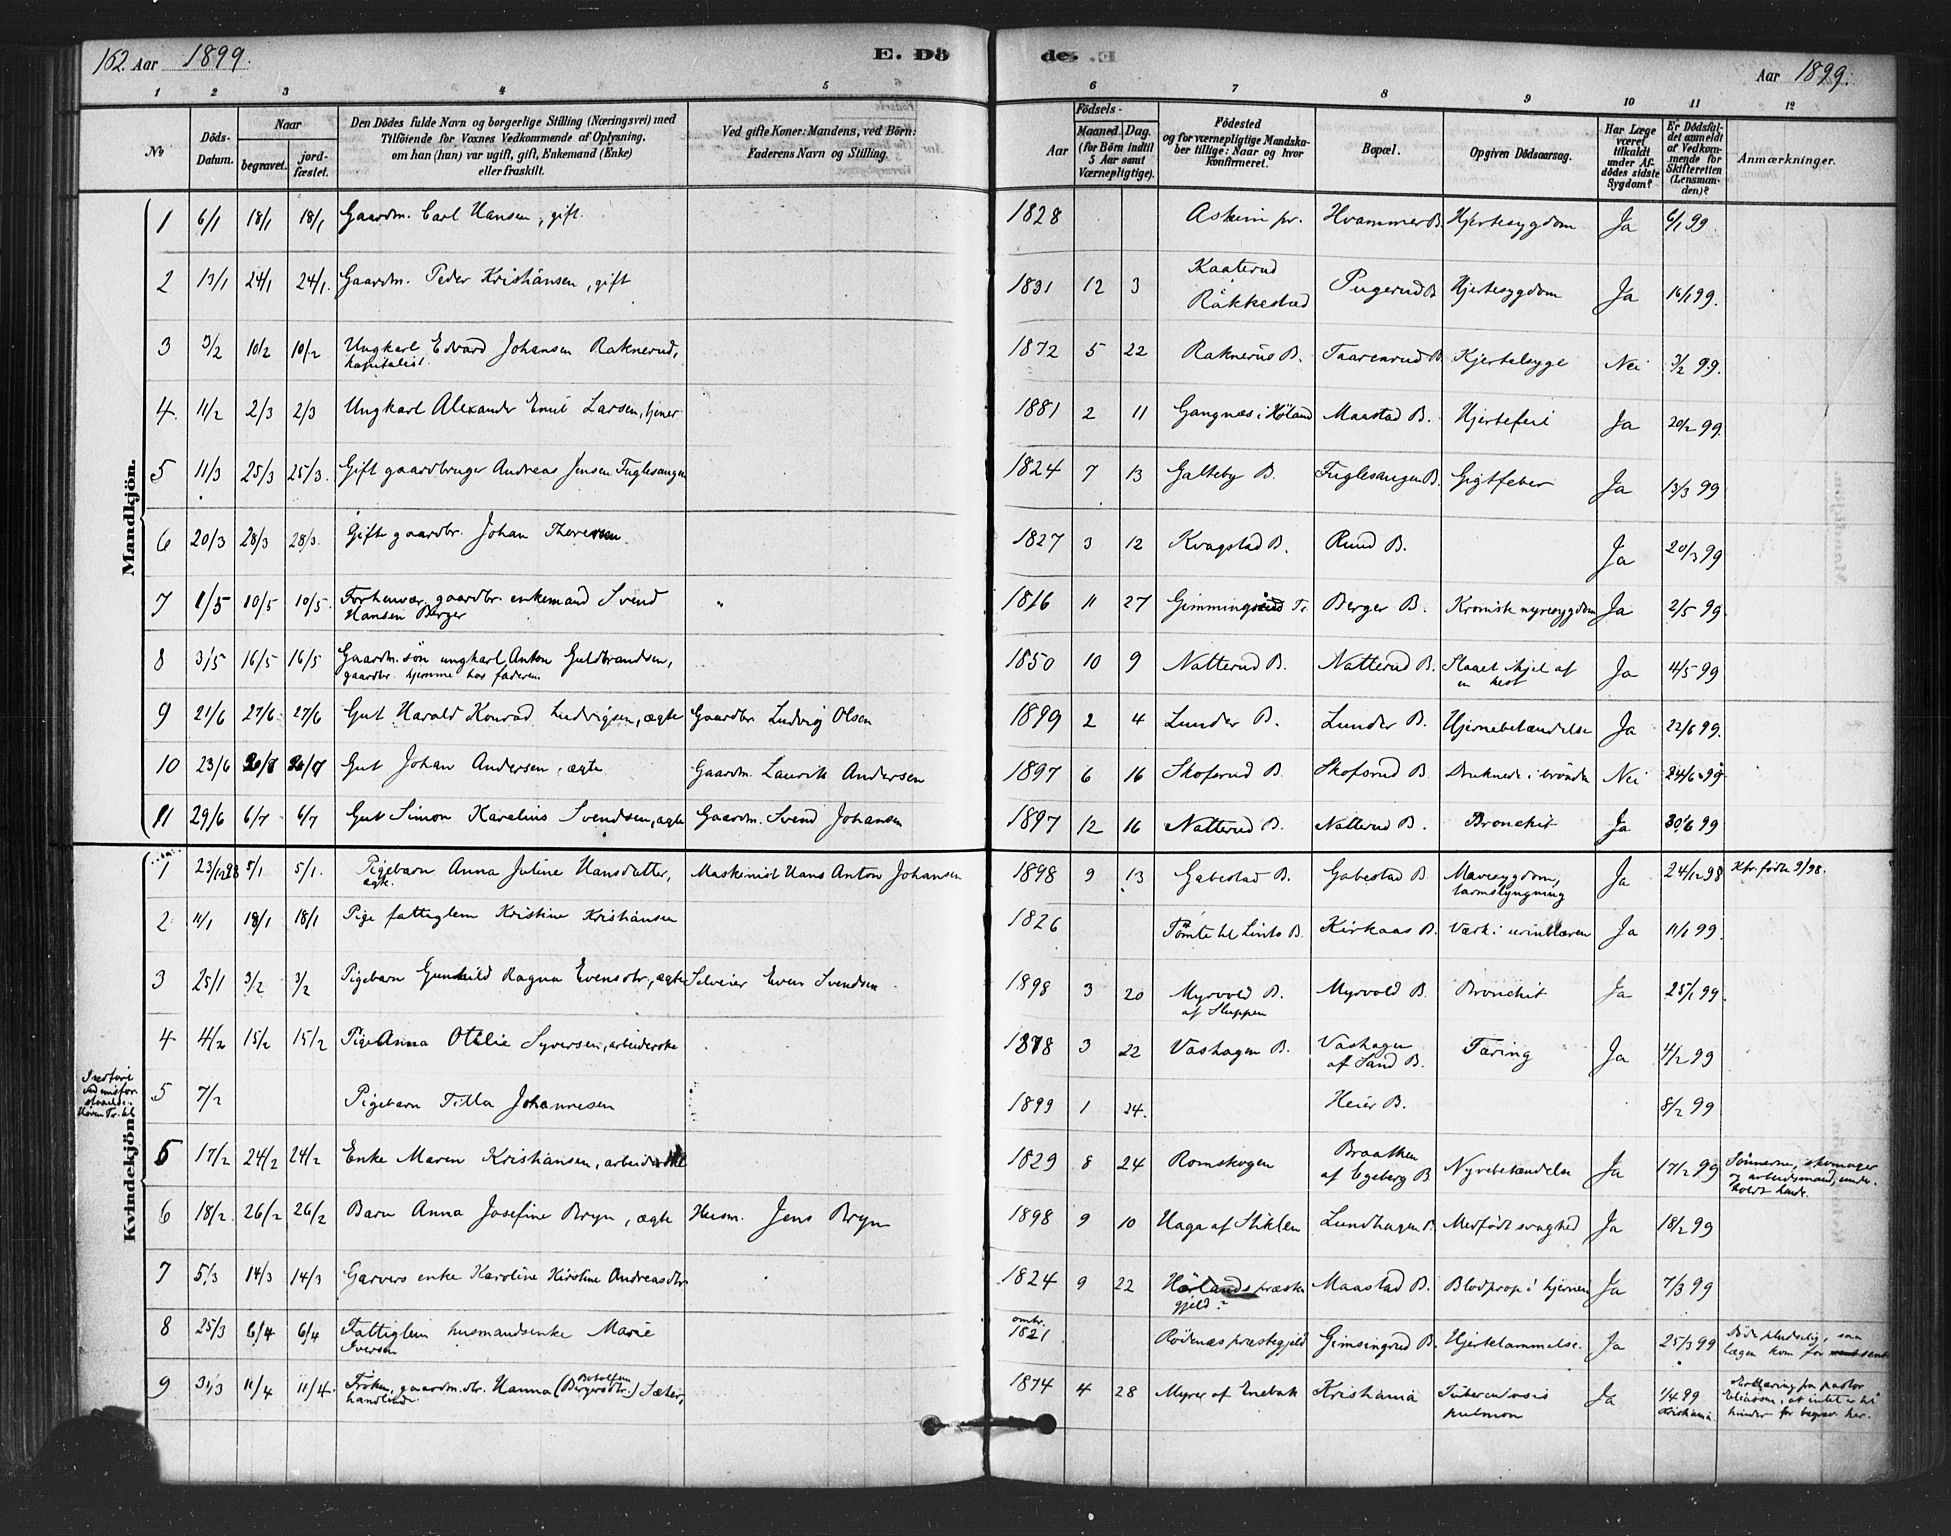 162. Aar 1899.
E. Dö
de.
Aar 1899.
1 2 3 4 5 6 7 8 9 10 11 12
No
Döds-Datum.
Naar
begravet.
jord-fæstet.
Den Dödes fulde Navn og borgerlige Stilling (Næringsvei) med
Tilföiende for Voxnes Vedkommende af Oplysning,
om han (hun) var ugift, gift, Enkemand (Enke)
eller fraskilt.
Ved gifte Koner: Mandens, ved Börn:
Faderens Navn og Stilling.
Aar
Födsels-
Maaned. Dag.
(for Börn indtil
5 Aar samt
Værnepligtige).
Födested
og for værnepligtige Mandska-
ber tillige: Naar og hvor
konfirmeret.
Bopæl.
Opgiven Dödsaarsag.
Har Læge
været
tilkaldt
under Af-
dödes sidste
Sygdom?
Er Dödsfal-
det anmeldt
af Vedkom-
mende for
Skifteretten
(Lensman-
den)?
Anmærkninger.
Mandkjön.
1 6/1 18/1 18/1 Gaardm. Carl Hansen, gift. 1828 Askim pr. Hvammer B. Hjertesygdom Ja 6/1 99.
2 13/1 24/1 24/1. Gaardm. Peder Kristiansen, gift 1831 12 3 Kaaterud Rakkestad Pugerud B Hjertesygdom Ja 16/1 99.
3 3/2 10/2 10/2 Ungkarl Edvard Johansen Raknerud, kapitalist. 1872 5 22 Raknerud B. Taarenrud B Kjertelsyge Nei 3/2 99.
4. 11/2 2/3 2/3 Ungkarl Alexander Emil Larsen, tjener 1881 2 11 Gangnæs i Höland Maastad B. Hjertefeil Ja 20/2 99.
5 11/3 25/3 25/3. Gift gaardbruger Andreas Jensen Fuglesangen 1824 7 13 Galteby B. Fuglesangen B. Gigtfeber Ja 13/3 99
6 20/3 28/3 28/3. Gift gaardbr. Johan Thoresen 1827 3 12 Kragstad B. Rud B. Ja 20/3 99
7 1/5 10/5 10/5. Forhenvær. gaardbr. enkemand Svend Hansen Berger " 1816 11 27 Gimmingsrud Tr. Berger B. Kronisk nyresygdom Ja 2/5 99.
8 3/5 16/5 16/5 Gaardm. sön ungkarl Anton Guldbrandsen, gaardbr. hjemme hos faderen. 1850 10 9 Natterud B. Natterud B. Slaaet ihjel af en hest Ja 4/5 99
9 21/6 27/6 27/6 Gut Harald Konrad Ludvigsen, ægte Gaardbr. Ludvig Olsen 1899 2 4 Lunder B. Lunder B. Hjernebetændelse Ja 22/6 99.
10 23/6 Gut Johan Andersen, ægte Gaardm. Laurits Andersen 1897 6 16 Skofsrud B. Skofsrud B. Druknede i brönden Nei 24/6 99
11 29/6 6/7 6/7 Gut Simon Karelius Svendsen, ægte Gaardm. Svend Johansen 1897 12 16 Natterud B. Natterud B. Bronchit Ja 30/6 99
Kvindekjön.
1 23/12 98 5/1 5/1. Pigebarn Anna Juline Hansdatter, ægte. Maskinist Hans Anton Johansen 1898 9 13 Gabestad B. Gabestad B. Mavesygdom, tarmslyngning Ja 24/12 98 Kfr. födte 9/98.
2 11/1 18/1 18/1 Pige fattiglem Kristine Kristiansen 1826 Tömte til Lints B. Kirkaas B. Værk i urinblæren Ja 11/1 99.
3 25/1 3/2 3/2 Pigebarn Gunhild Ragna Evensdtr., ægte Selveier Even Svendsen 1898 3 20 Myrvold B. af Sluppen Myrvold B. Bronchit Ja 25/1 99.
4 4/2 15/2 15/2 Pige Anna Otilie Syversen, arbeiderske 1878 3 22 Vashagen B. Vashagen af Sand B. Tæring Ja 4/2 99
5 7/2 Pigebarn Tilla Johannesen 1899 1 24. Heier B. 8/2 99
5 17/2 24/2 24/2 Enke Maren Kristiansen, arbeiderske 1829 8 24 Romskogen Braathen af Egeberg B Nyrebetændelse Ja 17/2 99 Sönnerne, skomager og arbeidsmand, underholdt hende.
6 18/2 26/2 26/2 Barn Anna Josefine Bryn, ægte Husm. Jens Bryn 1898 9 10 Haga af Stiklen Lundhagen B. Medfödt svaghed Ja 18/2 99
7 5/3 14/3 14/3 Garvers enke Karoline Kirstine Andreasdtr 1824 9 22 Hærlands præstegjeld? Maastad B. Blodprop i hjernen Ja 7/3 99
8 25/3 6/4 6/4 Fattiglem husmandsenke Marie Iversen omtr. 1821 Rödenæs præstegjeld Gimsingrud B. Hjertelammelse. Ja 25/3 99 Döde pludselig, saa lægen kom for sent
9 31/3 11/4 11/4. Fröken, gaardm.dtr. Hanna (Bergersdtr.) Sæter, handlende 1874 4 28 Myrer af Enebak Kristiania Tuberculosis pulmon Ja 1/4 99 Kristiania Erklæring fra pastor Eliassen, at intet er til hinder for begrav. her.